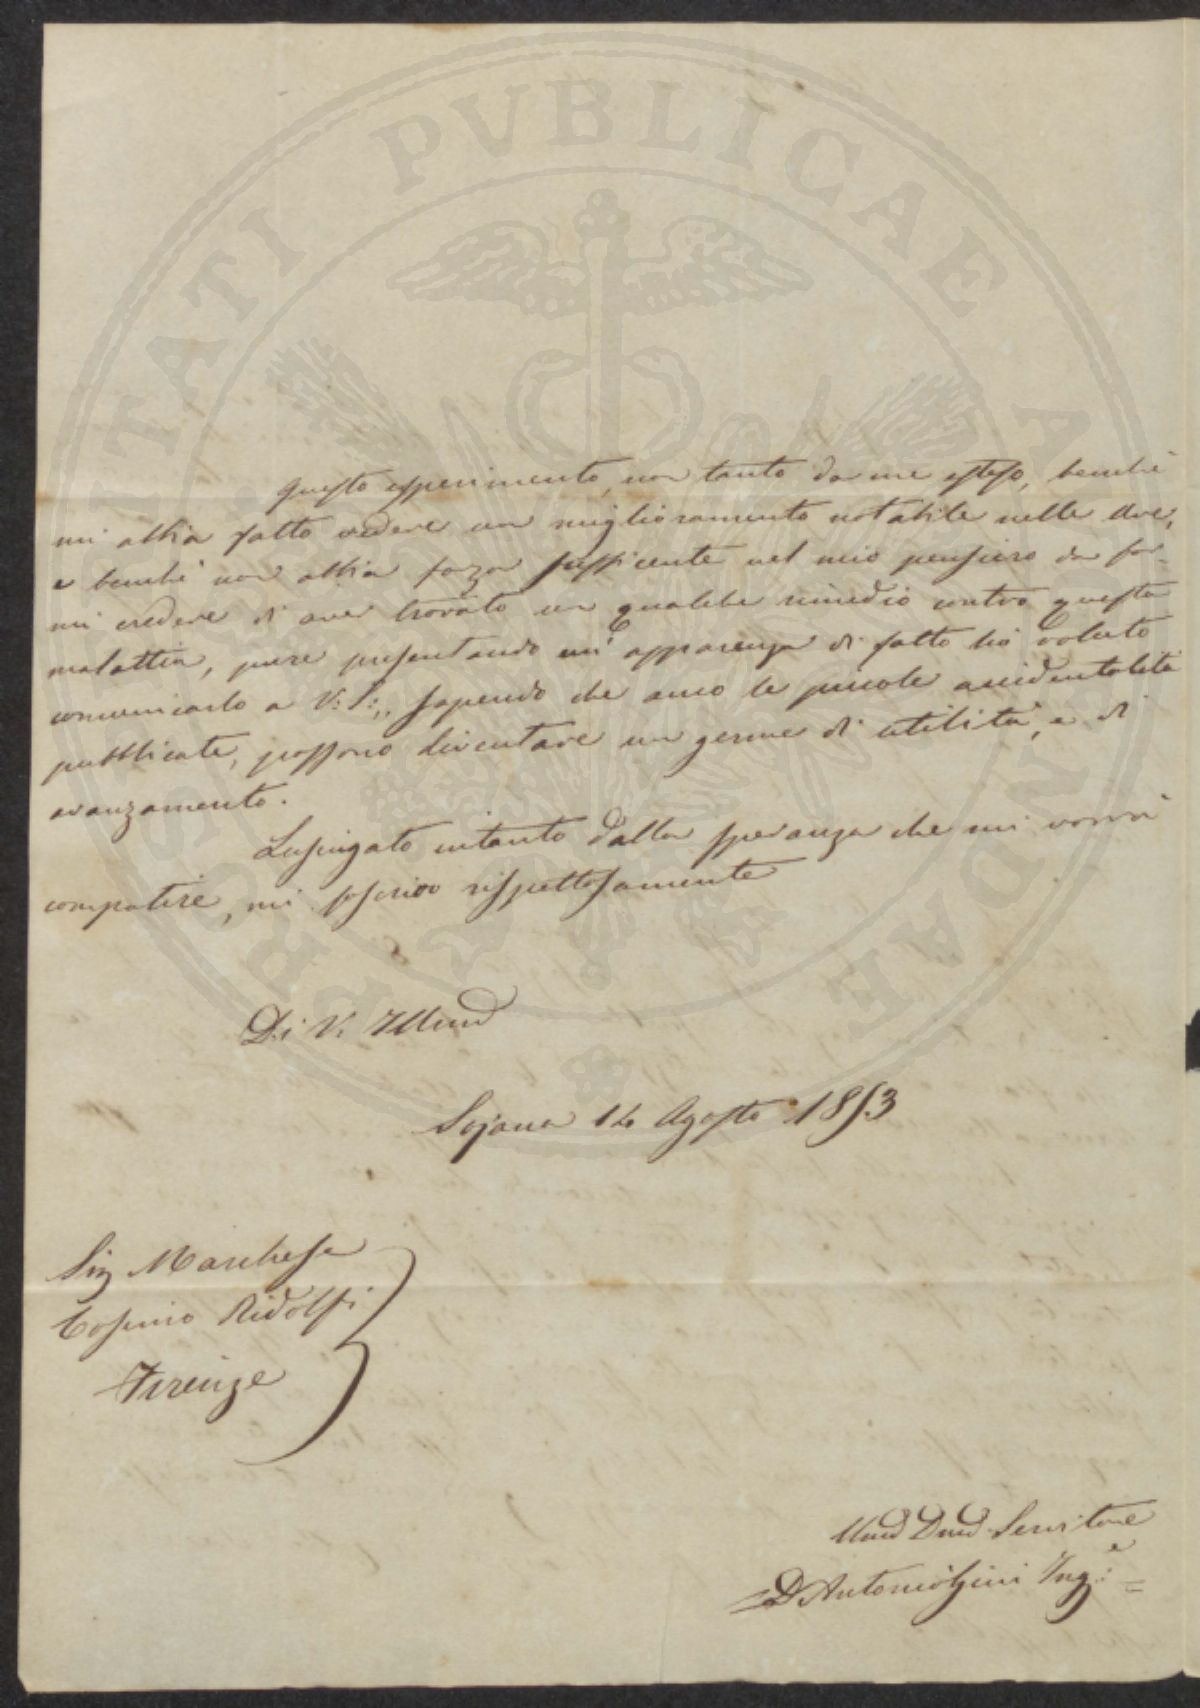 PROSPERITATI PUBLICAE AUGENDAE
Questo esperimento, non tanto da me esteso, benchè
mi abbia fatto vedere un miglioramento notabile nelle Uve,
e benchè non abbia forza sufficente nel mio pensiero da far-
mi credere di aver trovato un qualche rimedio contro questa
malattia, pure presentando un' apparenza di fatto hò voluto
comunicarlo a V: S:, sapendo che anco le piccole accidentalità
pubblicate, possono diventare un germe di utilità, e di
avanzamento.
Lusingato intanto dalla speranza che mi vorrà
compatire, mi soscrivo rispettosamente
Di V. Illma
Sojana 14 Agosto 1853
Sig Marchese
Cosimo Ridolfi
Firenze
Umo Dmo Servitore
D Antonio Ing:e